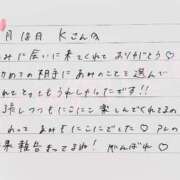 月18日 Kさんへ
みに会いに来てくれて ありがとう♡
めての相手に あみのことを 選んで
れてとっても うれしかったです!!
張しつつも にこにこ楽しんでくれてるの
わって あみも にこにこでした♡
果報告まってるね! がんばれ♡